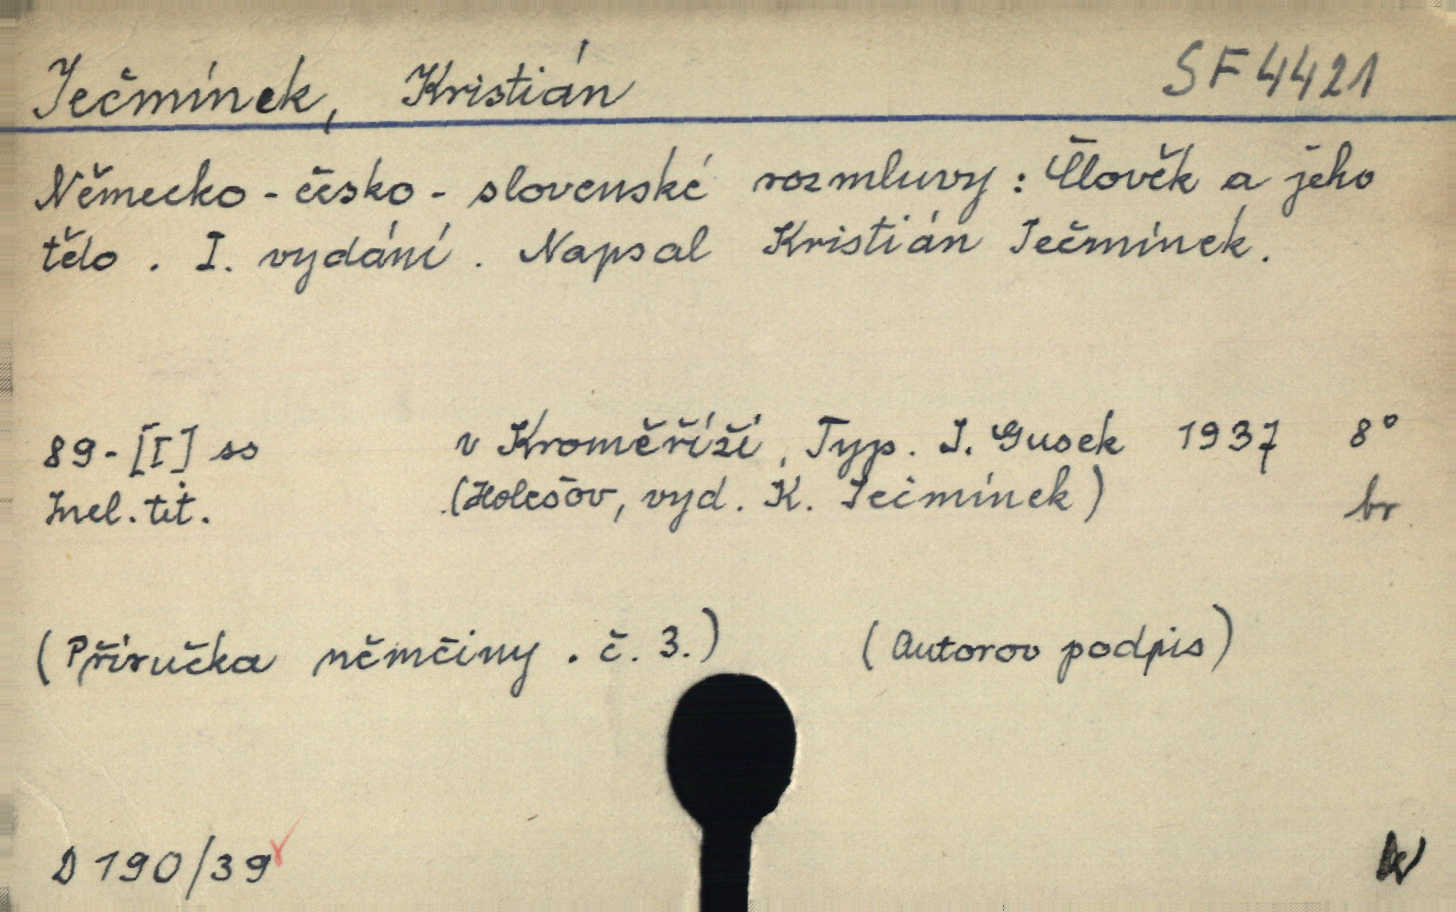 Ječmínek, Kristián SF 4421
Německo - česko - slovenské rozmluvy : Člověk a jeho
tělo . I. vydání . Napsal Kristián Ječmínek.
89 - [I] ss v Kroměříži, Typ. J. Gusek 1937 8°
Incl. tit. (Holešov, vyd. K. Ječmínek) br
(Příručka němčiny . č. 3.) (Autorov podpis)
D 190/39